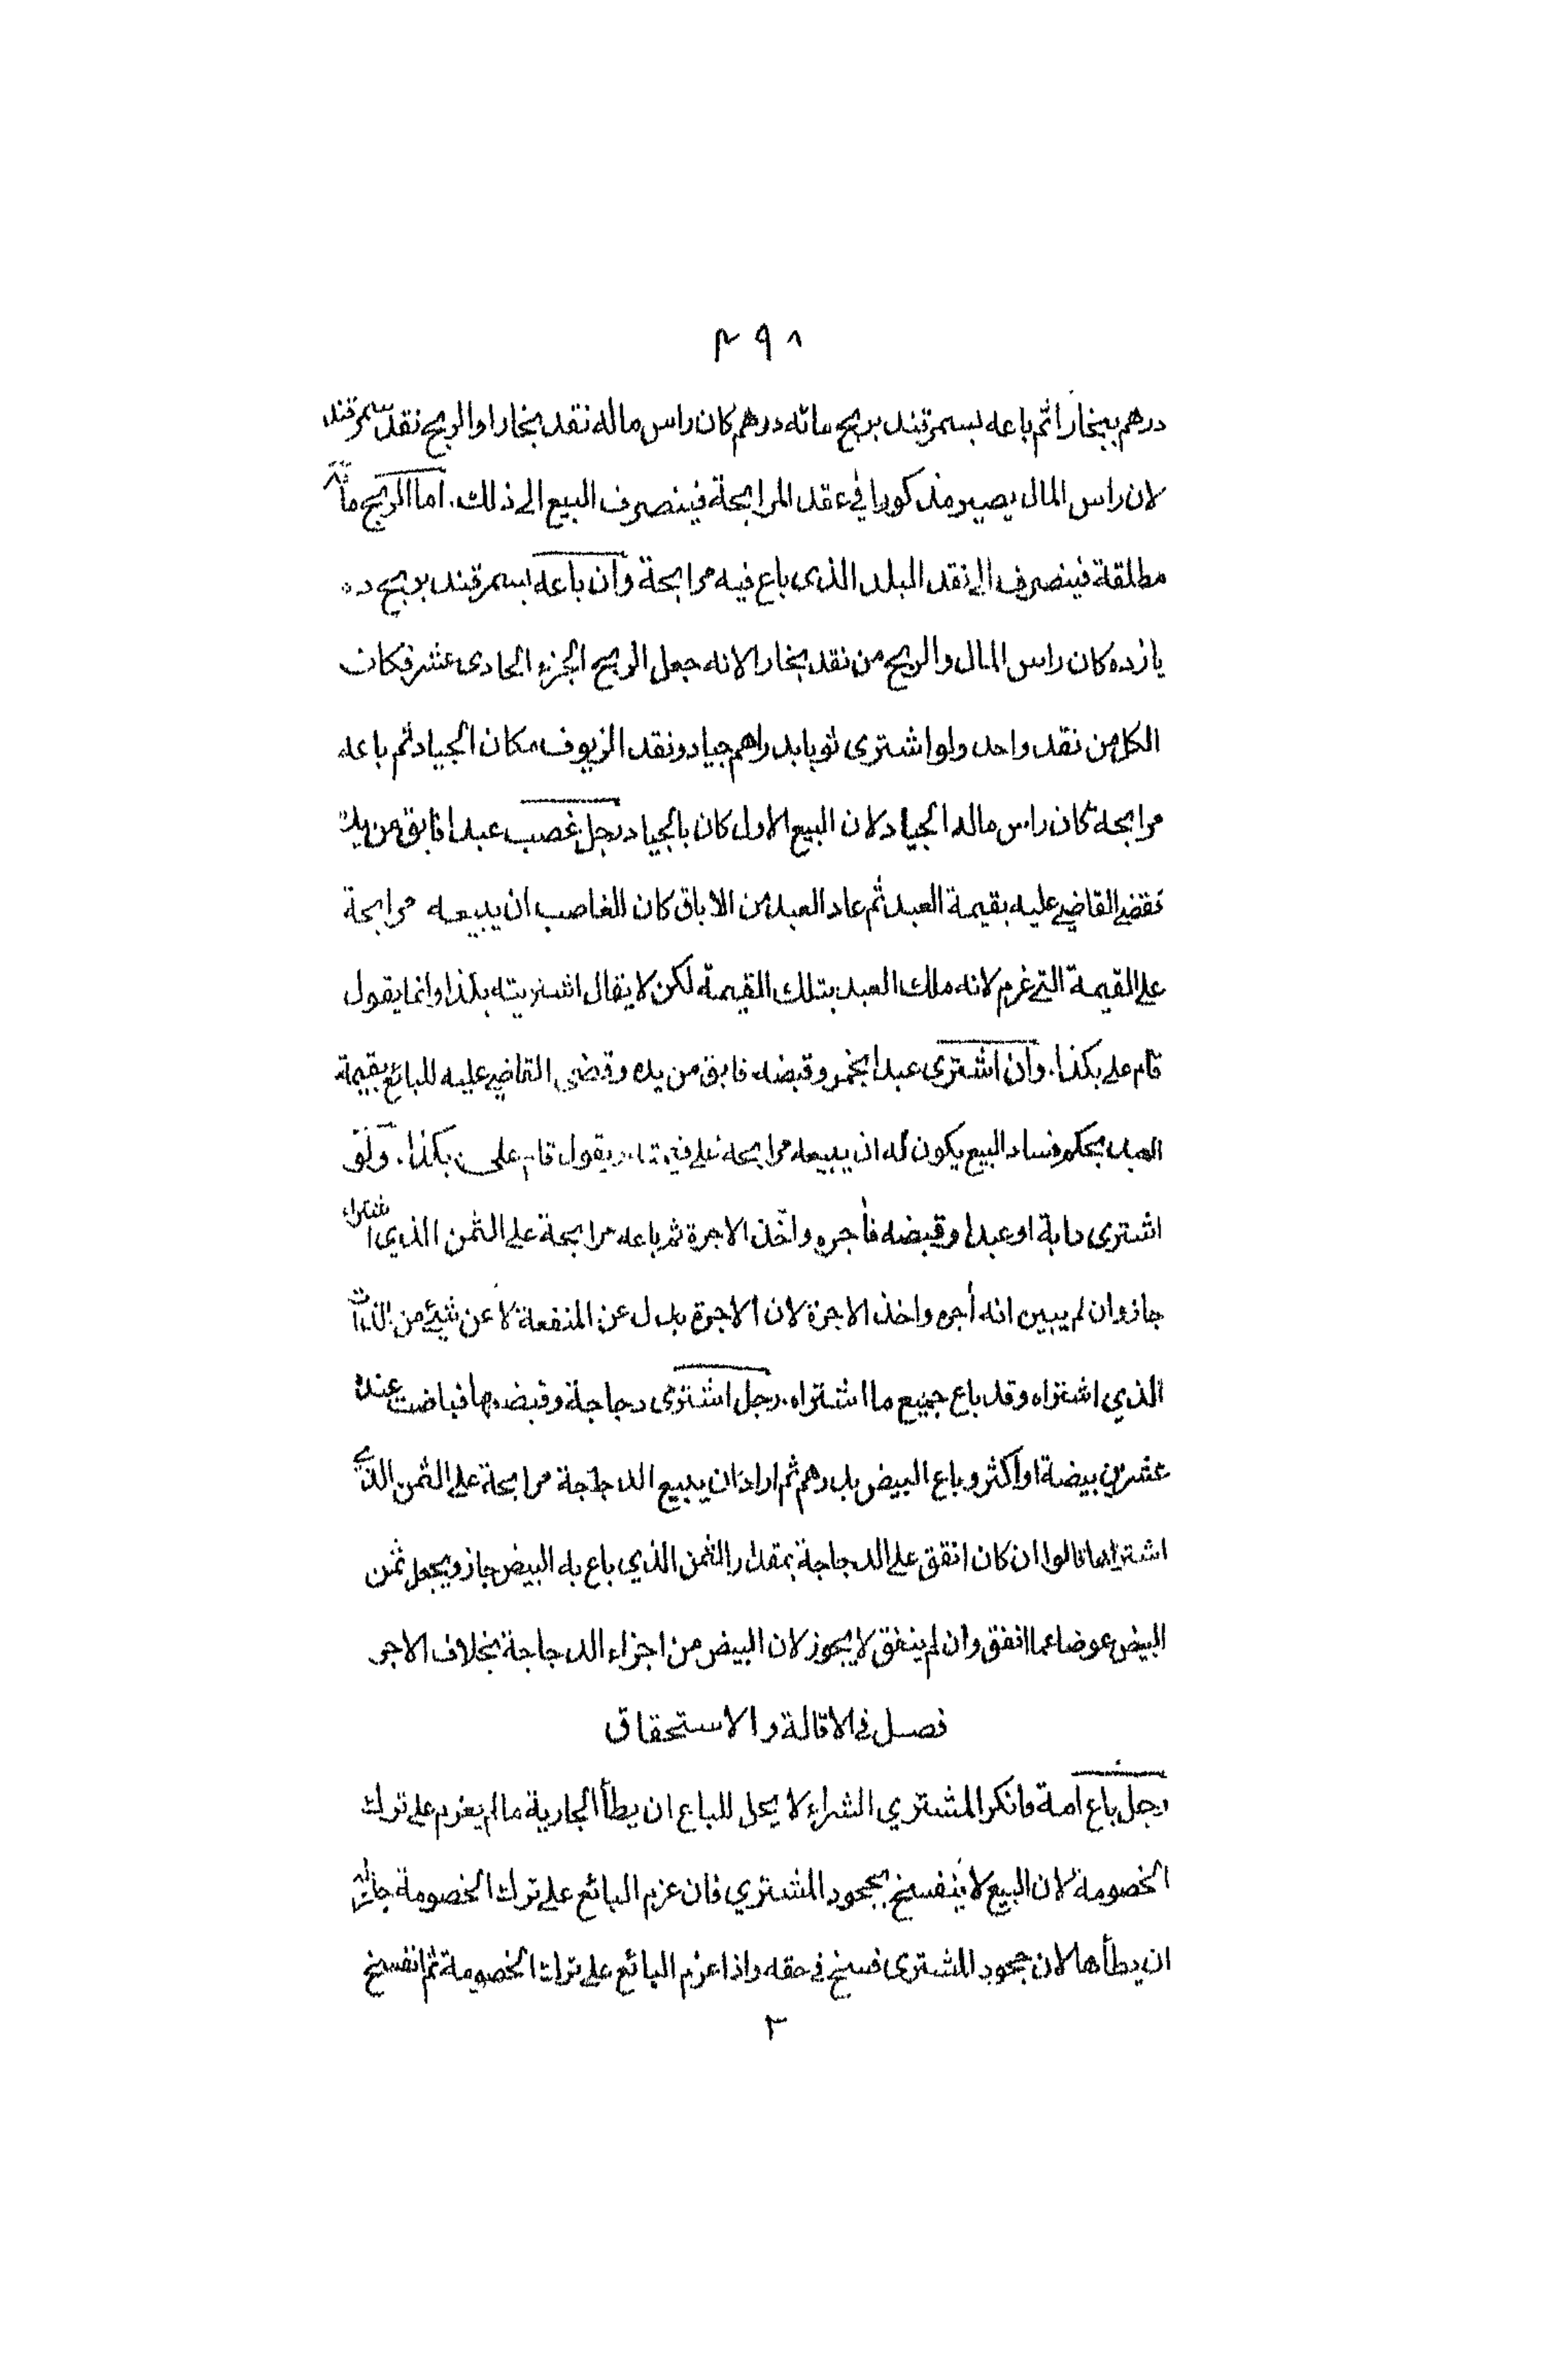 ٢٩٨
درهم ببخارا ثم باعه بسمرقند بربح مائه درهم كان راس ماله نقد بخارا والربح نقد سمرقند
لان راس المال يصير مذكورا في عقد المرابحة فينصرف البيع الى ذلك. اما الربح مائة
مطلقة فينصرف الى نقد البلد الذى باع فيه مرابحة وان باعه بسمرقند بربح ده
يازده كان راس المال والربح من نقد بخارا لانه جعل الربح الجزء الحادى عشر فكان
الكل من نقد واحد ولو اشترى ثوبا بدراهم جياد ونقد الزيوف مكان الجياد ثم باعه
مرابحة كان راس ماله الجياد لان البيع الاول كان بالجياد رجل غصب عبدا فابق من يده
فقضى القاضي عليه بقيمة العبد ثم عاد العبد من الاباق كان للغاصب ان يبيعه مرابحة
على القيمة التي غرم لانه ملك العبد بتلك القيمة لكن لا يقال اشتريته بكذا وانما يقول
قام علي بكذا. وان اشترى عبدا بخمر وقبضه فابق من يده وقضى القاضي عليه للبائع بقيمة
العبد بحكم فساد البيع يكون له ان يبيعه مرابحة على قيمته ويقول قام على بكذا. ولو
اشترى دابة او عبدا وقبضه فأجره واخذ الاجرة ثم باعه مرابحة على الثمن الذي اشتراه
جاز وان لم يبين انه أجره واخذ الاجرة لان الاجرة بدل عن المنفعة لا عن شيئ من الذات
الذي اشتراه وقد باع جميع ما اشتراه. رجل اشترى دجاجة وقبضها فباضت عنده
عشرين بيضة او اكثر وباع البيض بدرهم ثم اراد ان يبيع الدجاجة مرابحة على الثمن الذي
اشتراها قالوا ان كان انفق على الدجاجة بمقدار الثمن الذي باع به البيض جاز ويجعل ثمن
البيض عوضا عما انفق وان لم ينفق لا يجوز لان البيض من اجزاء الدجاجة بخلاف الاجر
فصل في الاقالة والاستحقاق
رجل باع امة فانكر المشتري الشراء لا يحل للبايع ان يطأ الجارية ما لم يعزم على ترك
الخصومة لان البيع لا ينفسخ بجحود المشتري فان عزم البائع على ترك الخصومة جاز له
ان يطأها لان جحود المشترى فسخ في حقه واذا عزم البائع على ترك الخصومة ثم انفسخ
٢